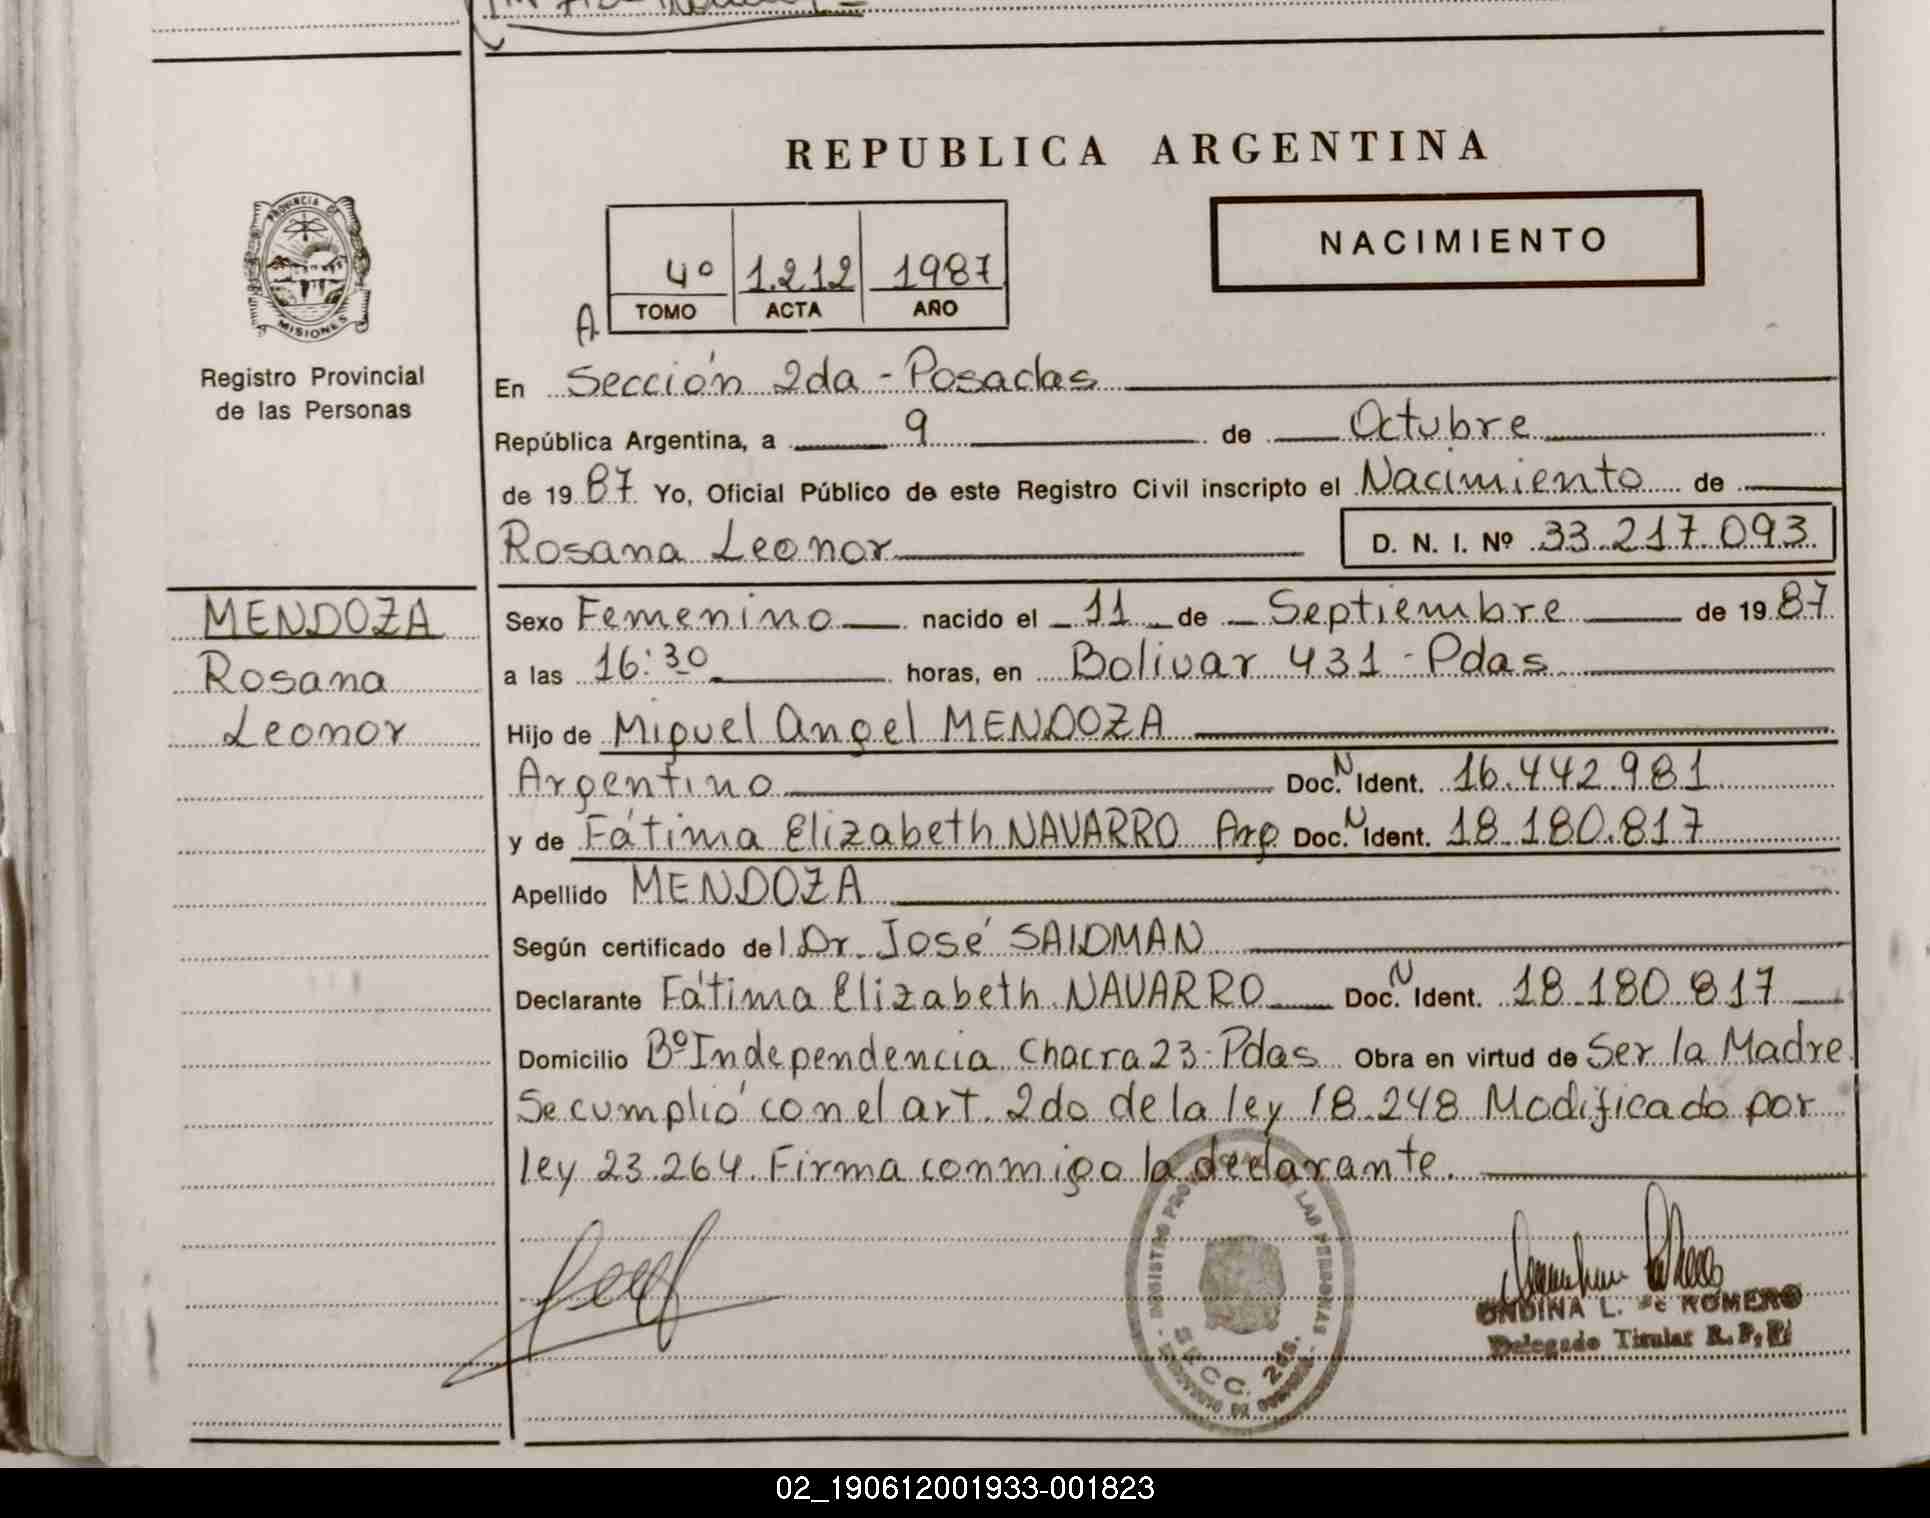 REPUBLICA ARGENTINA
NACIMIENTO
PROVINCIA DE
MISIONES
Registro Provincial
de las Personas
4º 1.212 1987
A TOMO ACTA AÑO
En Sección 2da - Posadas
República Argentina, a 9 de Octubre
de 19 87 Yo, Oficial Público de este Registro Civil inscripto el Nacimiento de
Rosana Leonor D. N. I. Nº 33.217.093
MENDOZA
Rosana
Leonor
Sexo Femenino nacido el 11 de Septiembre de 19 87
a las 16:30 horas, en Bolivar 431 - Pdas
Hijo de Miguel Angel MENDOZA
Argentino Doc. N Ident. 16.442.981
y de Fátima Elizabeth NAVARRO Arg Doc. N Ident. 18.180.817
Apellido MENDOZA
Según certificado del Dr. José SAIDMAN
Declarante Fátima Elizabeth NAVARRO Doc. N Ident. 18.180.817
Domicilio Bº Independencia Chacra 23 - Pdas Obra en virtud de Ser la Madre
Se cumplió con el art. 2do de la ley 18.248 Modificado por
ley 23.264. Firma conmigo la declarante.
LAS PERSONAS
SECC. 2da.
ONDINA L. de ROMERO
Delegado Titular R. P. P.
02_190612001933-001823